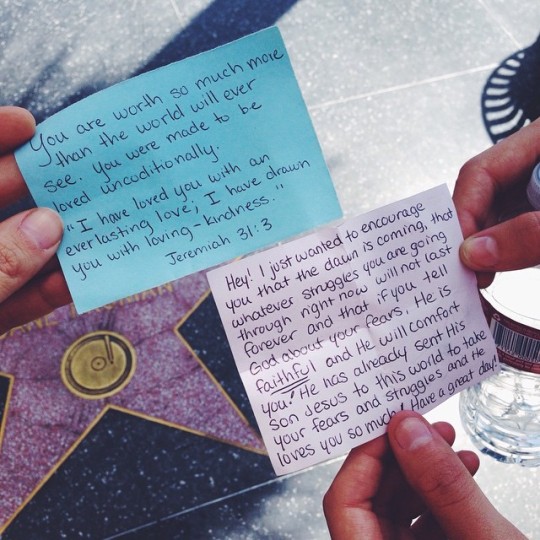 You are worth so much more
than the world will ever
see. You were made to be
loved uncoditionally.
"I have loved you with an
everlasting love; I have drawn
you with loving-kindness."
Jeremiah 31:3
Hey! I just wanted to encourage
you that the dawn is coming, that
whatever struggles you are going
through right now will not last
forever and that if you tell
God about your fears, He is
faithful and He will comfort
you! He has already sent His
son Jesus to this world to take
your fears and struggles and He
loves you so much! Have a great day!